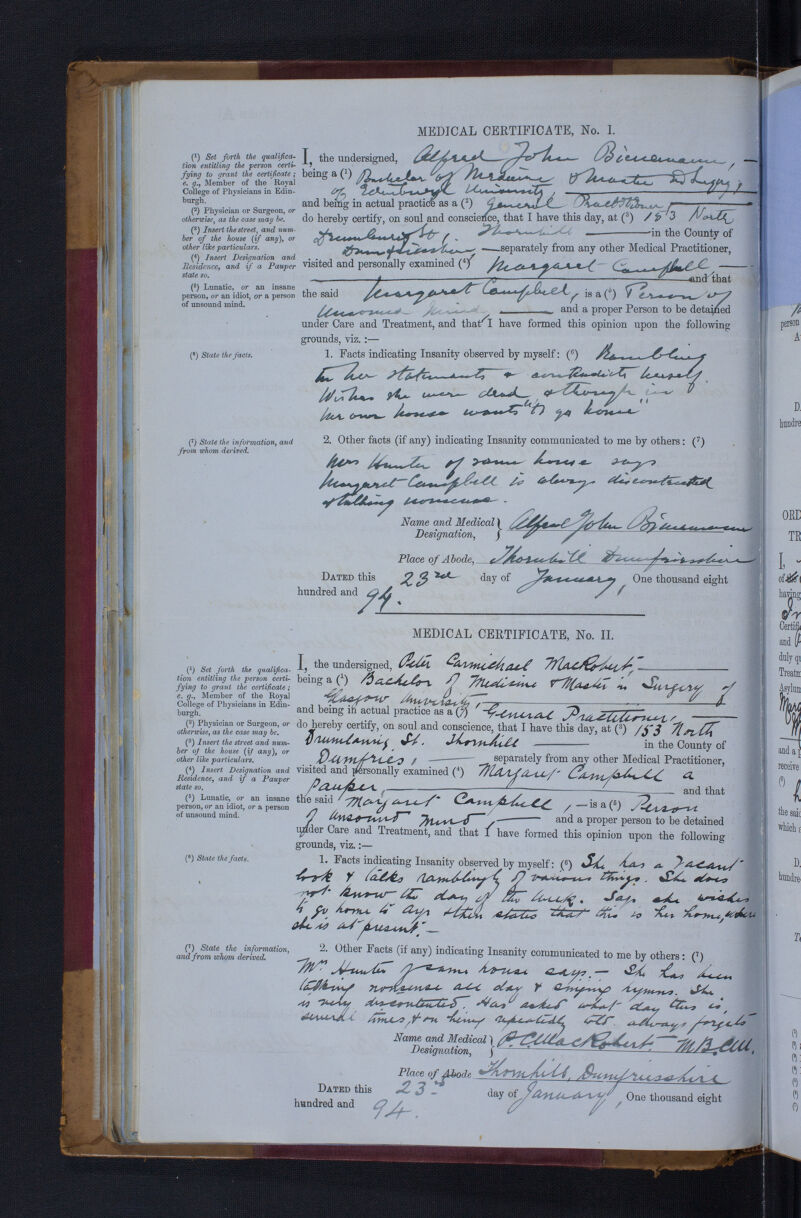 MEDICAL CERTIFICATE, No. I.
(¹) Set forth the qualifica-
tion entitling the person certi-
fying to grant the certificate;
e. g., Member of the Royal
College of Physicians in Edin-
burgh.
(²) Physician or Surgeon, or
otherwise, as the case may be.
(³) Insert the street, and num-
ber of the house (if any), or
other like particulars.
(⁴) Insert Designation and
Residence, and if a Pauper
state so.
(⁵) Lunatic, or an insane
person, or an idiot, or a person
of unsound mind.
I, the undersigned, Alfred John Bienemann,
being a (¹) Bachelor of Medicine & Master in Surgery,
of Edinburgh University
and being in actual practice as a (²) General Practitioner
do hereby certify, on soul and conscience, that I have this day, at (³) 153 North
Drumlanrig St, Thornhill in the County of
Dumfriesshire, separately from any other Medical Practitioner,
visited and personally examined (⁴) Margaret Campbell
and that
the said Margaret Campbell, is a (⁵) Person of
Unsound Mind and a proper Person to be detained
under Care and Treatment, and that I have formed this opinion upon the following
grounds, viz. :—
(⁶) State the facts.
1. Facts indicating Insanity observed by myself: (⁶) Rambling
in her statements & contradicts herself.
Wishes she were dead, & though in
her own house wants "to go home"
(⁷) State the information, and
from whom derived.
2. Other facts (if any) indicating Insanity communicated to me by others: (⁷)
Mrs Hunter of same house says
Margaret Campbell is always discontented
& talking nonsense.
Name and Medical Designation, Alfred John Bienemann
Place of Abode, Thornhill Dumfriesshire
DATED this 23rd day of January, One thousand eight
hundred and 94.
MEDICAL CERTIFICATE, No. II.
(¹) Set forth the qualifica-
tion entitling the person certi-
fying to grant the certificate;
e. g., Member of the Royal
College of Physicians in Edin-
burgh.
(²) Physician or Surgeon, or
otherwise, as the case may be.
(³) Insert the street and num-
ber of the house (if any), or
other like particulars.
(⁴) Insert Designation and
Residence, and if a Pauper
state so.
(⁵) Lunatic, or an insane
person, or an idiot, or a person
of unsound mind.
I, the undersigned, Peter Carmichael MacRobert,
being a (¹) Bachelor of Medicine & Master in Surgery of
Glasgow University,
and being in actual practice as a (²) General Practitioner,
do hereby certify, on soul and conscience, that I have this day, at (³) 153 North
Drumlanrig St. Thornhill in the County of
Dumfries, separately from any other Medical Practitioner,
visited and personally examined (⁴) Margaret Campbell a
Pauper, and that
the said Margaret Campbell, — is a (⁵) Person
of Unsound Mind, and a proper person to be detained
under Care and Treatment, and that I have formed this opinion upon the following
grounds, viz. :—
(⁶) State the facts.
1. Facts indicating Insanity observed by myself: (⁶) She has a vacant
look & talks ramblingly of various things. She does
not know the day of the week. Says she wishes
to go home to Ayr & then states that this is her home, where
she is at present. —
(⁷) State the information,
and from whom derived.
2. Other Facts (if any) indicating Insanity communicated to me by others: (⁷)
Mrs Hunter of same house says. — She has been
talking nonsense all day & singing hymns. She
is very discontented. Has asked what day this is,
several times, & on being repeatedly told always forgets
Name and Medical Designation, P. C. MacRobert. M.B., C.M.
Place of Abode Thornhill, Dumfriesshire
DATED this 23rd day of January, One thousand eight
hundred and 94.
person
A
D.
hundre
ORD
TR
I,
of
having
Certifi
and
duly qu
Treatm
Asylum
and a
receive
the said
which
D.
hundre